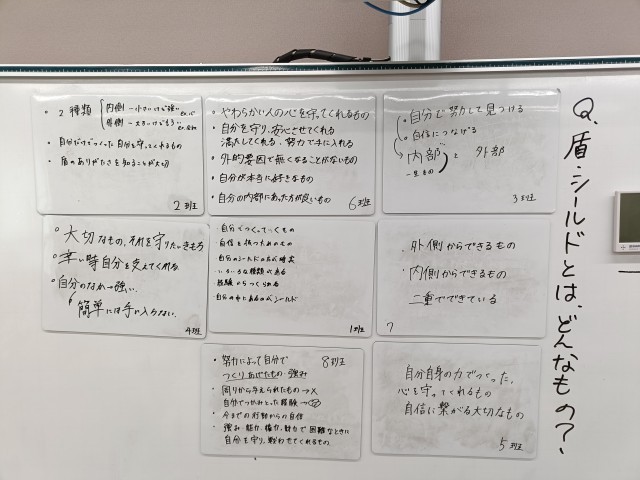 Q. 盾・シールドとは、どんなもの？
・2種類 内側 ー小さいけど強い
外側 ー大きいけどもろい
・自分だけでつくった自分を守ってくれるもの
・盾のありがたさを知ることが大切
2班
・やわらかい人の心を守ってくれるもの
・自分を守り、安心させてくれる
満足してくれる、努力で手に入れる
・外的要因で無くなることがないもの
・自分が本当に好きなもの
・自分の内部にあった方が良いもの
6班
・自分で努力して見つける
・自信につなげる
内部 と 外部
一生もの
3班
・大切なもの、それを守りたいきもち
・辛い時自分を支えてくれる
・自分のなか→強い.
簡単には手に入らない.
4班
・自分でつくっていくもの
・自信を保つためのもの
・自分のシールドの方が確実
・いろいろな種類がある
・経験からつくられる
・自分の中にあるのがシールド
1班
外側からできるもの
内側からできるもの
二重でできている
7
8班
・努力によって自分で
つくりあげたもの 強み
・周りから与えられたもの→×
自分でつかみとった経験→
・今までの行動からの自信
・強み・能力、権力、財力で困難なときに
自分を守り、戦わせてくれるもの
自分自身の力でつくった、
心を守ってくれるもの
自信に繋がる大切なもの
5班